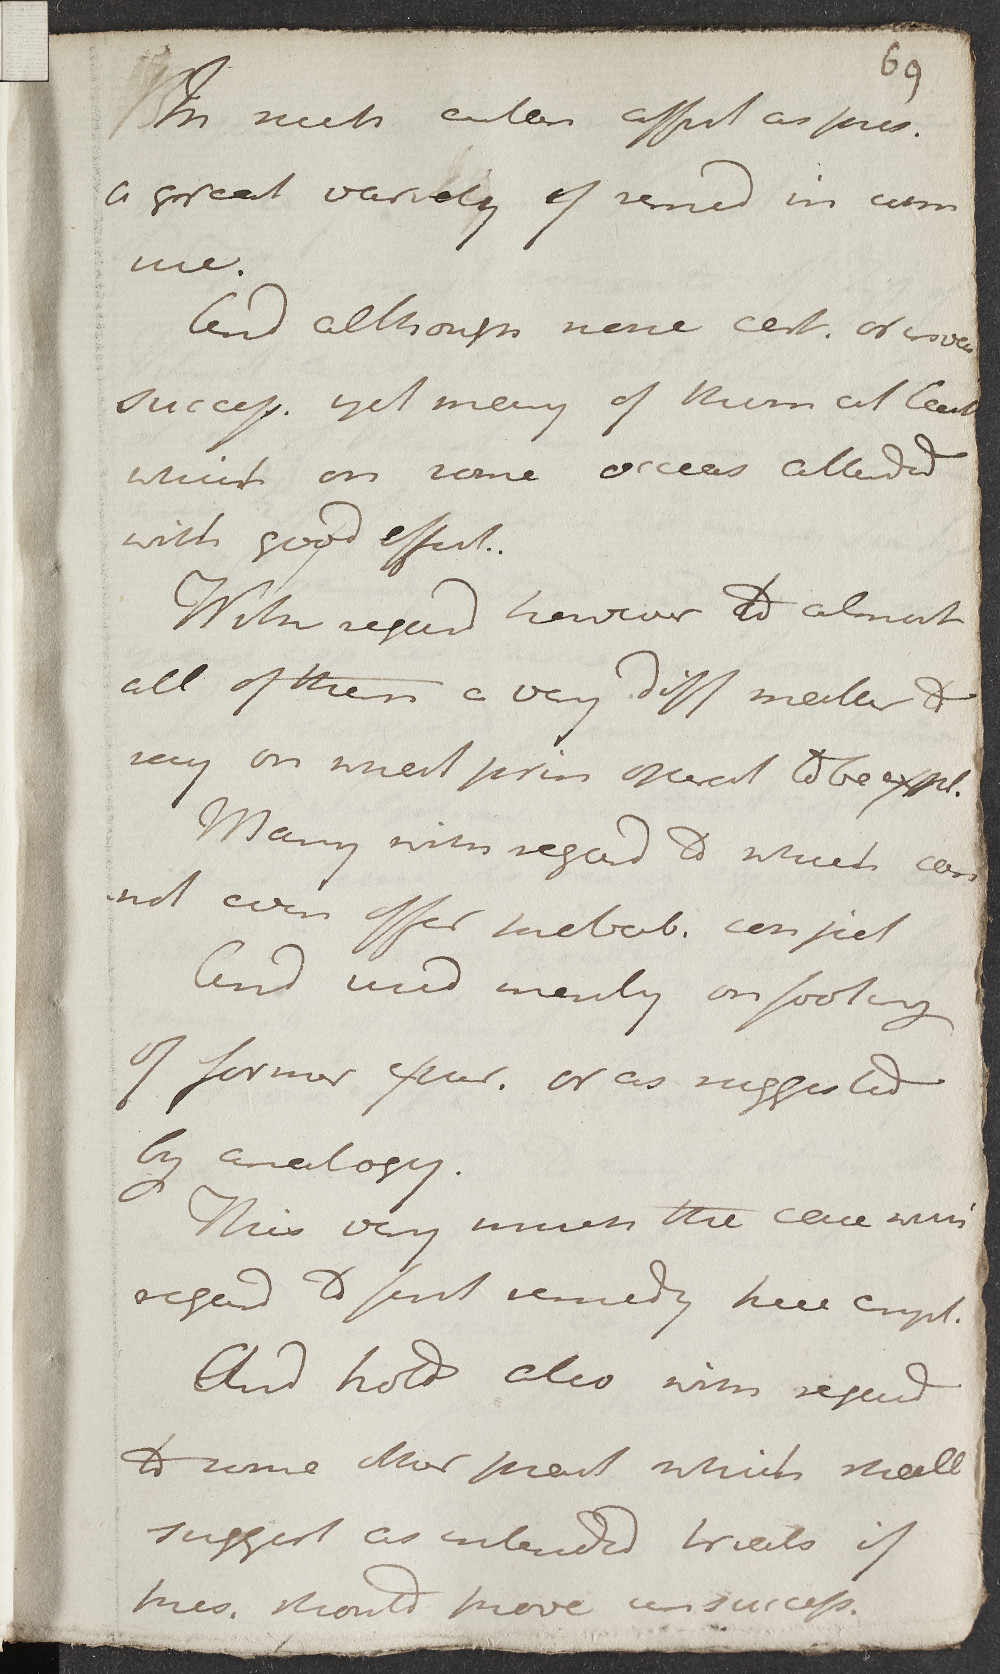 69
In such cutan affect as pres.
a great variety of remed in com
use.
And although none cert. or univ
success. yet many of them at least
which on some occas attended
with good effect..
With regard however to almost
all of them a very diff matter to
say on what prin operat to be expl.
Many with regard to which can
not even offer probab. conject
And used merely on footing
of former exper. or as suggested
by analogy.
This very much the case with
regard to first remedy here empl.
And holds also with regard
to some other pract which shall
suggest as intended trials if
pres. should prove unsuccess.